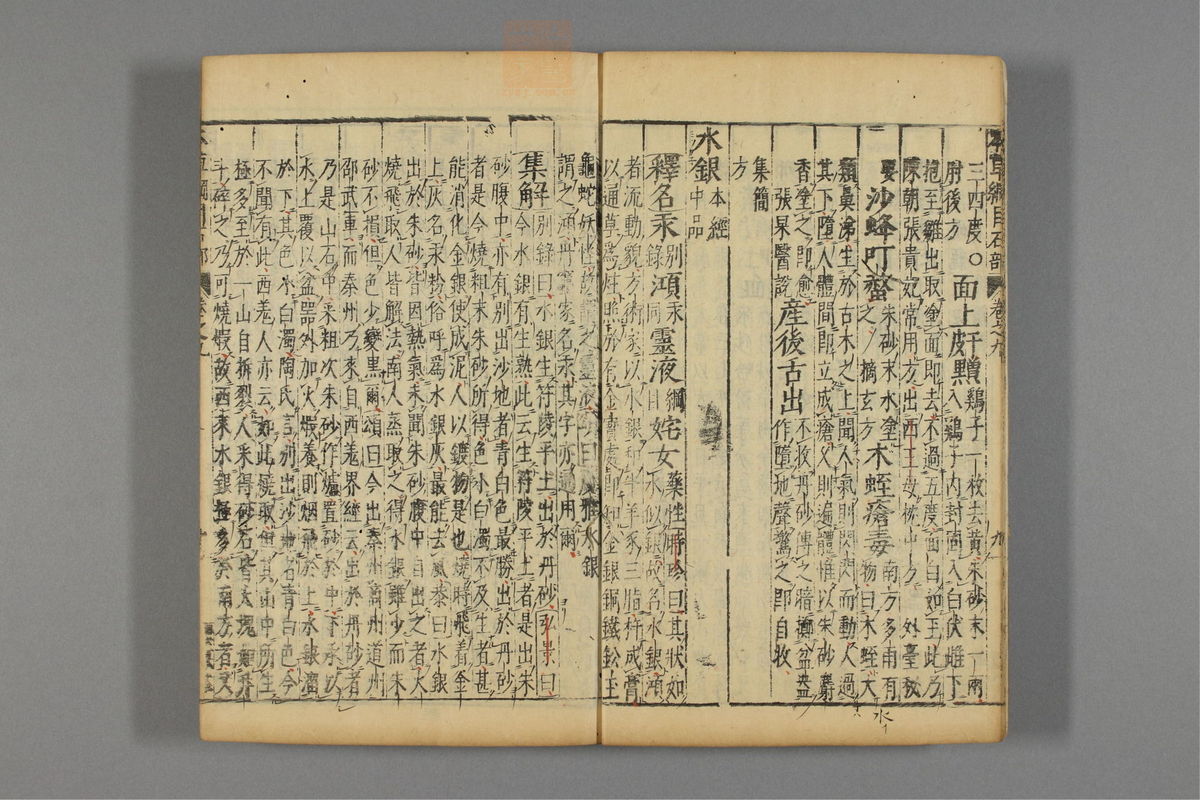 本草綱目石部 卷之九 九
三四度○面上皯䵟鷄子一枚去黃朱砂末一兩
肘後方
入鷄子內封固入白伏雌下
抱至雛出取塗面即去不過五度面白如玉此乃
陳朝張貴妃常用方出西王母枕中方外臺秘
要沙蜂叮螫朱砂末水塗
之摘玄方木蛭瘡毒南方多雨有
物曰木蛭大
類鼻涕生於古木之上聞人氣則閃閃而動人過
其下墮人體間即立成瘡久則遍體惟以朱砂麝
香塗之即愈
張杲醫說產後舌出不收丹砂傅之暗擲盆盎
作墮地聲驚之即自收
集簡
方
水銀本經
中品
釋名汞別錄澒汞同靈液綱目姹女藥性時珍曰其狀如
水似銀故名水銀澒
者流動貌方術家以水銀和牛羊豕三脂杵成膏
以通草為炷照於有金寶處即知金銀銅鐵鉛玉
龜蛇妖怪故謂之靈液頌曰廣雅水銀
謂之澒丹竈家名汞其字亦通用爾
集解別錄曰水銀生符陵平土出於丹砂弘景曰
今水銀有生熟此云生符陵平土者是出朱
砂腹中亦有別出沙地者青白色最勝出於丹砂
者是今燒粗末朱砂所得色小白濁不及生者甚
能消化金銀使成泥人以鍍物是也燒時飛着釜
上灰名汞粉俗呼爲水銀灰最能去風恭曰水銀
出於朱砂皆因熱氣未聞朱砂腹中自出之者火
燒飛取人皆解法南人蒸取之得水銀雖少而朱
砂不損但色少變黑爾頌曰今出秦州商州道州
邵武軍而秦州乃來自西羌界經云出於丹砂者
乃是山石中采粗次朱砂作爐置砂於中下承以
水上覆以盆器外加火煅養則烟飛於上水銀溜
於下其色小白濁陶氏言別出沙地者青白色今
不聞有此西羌人亦云如此燒取但其山中所生
極多至於一山自拆裂人采得砂石皆大塊如升
斗碎之乃可燒煅故西來水銀極多於南方者又